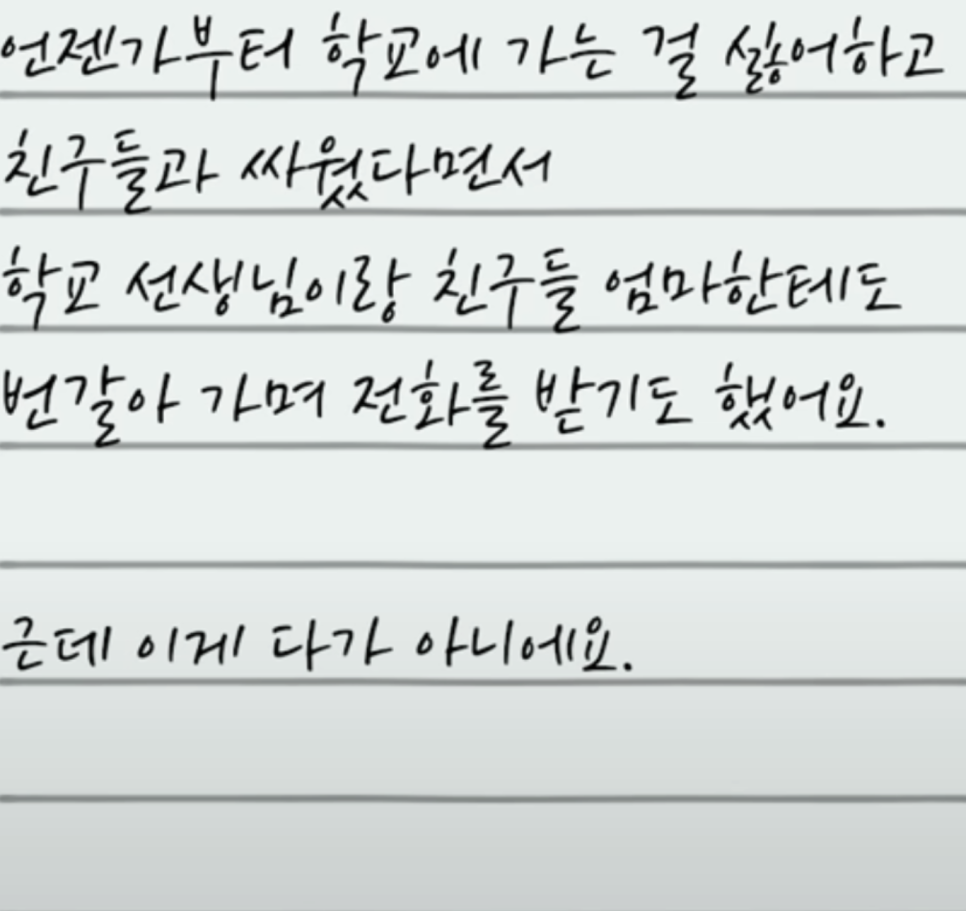 언젠가부터 학교에 가는 걸 싫어하고
친구들과 싸웠다면서
학교 선생님이랑 친구들 엄마한테도
번갈아 가며 전화를 받기도 했어요.
근데 이게 다가 아니에요.